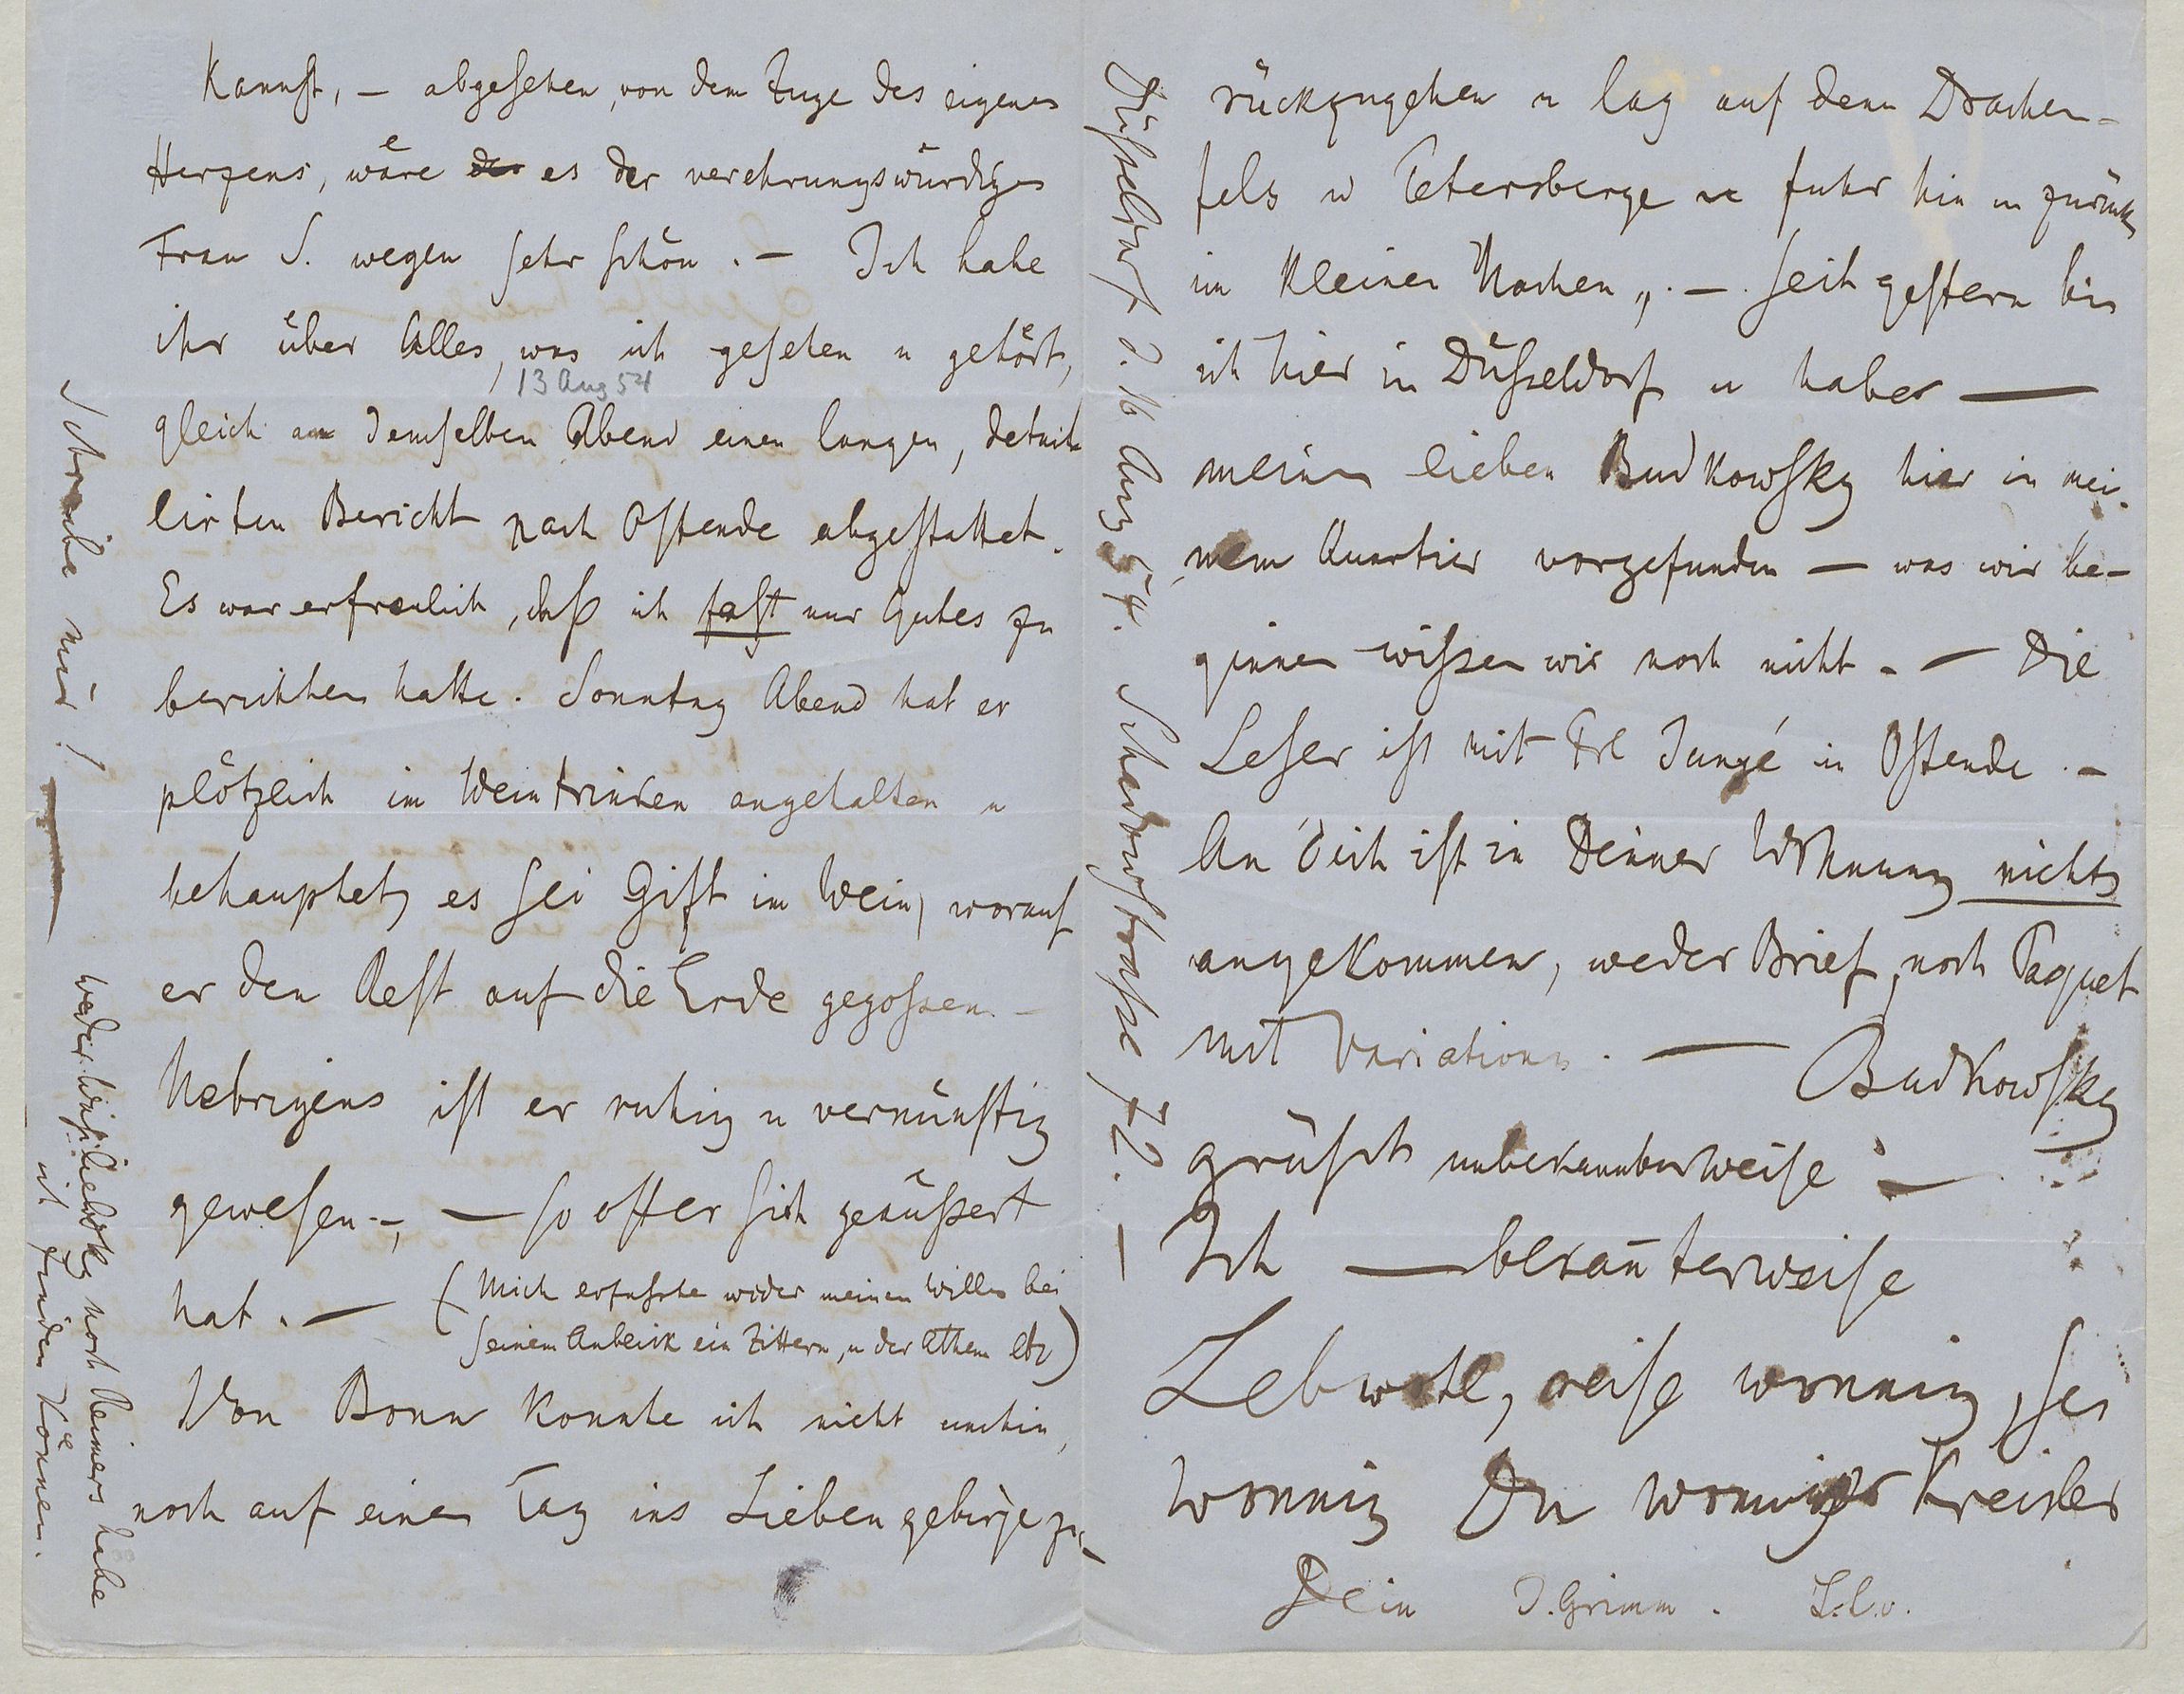 Kannst, – abgesehen von dem Zuge des eigenen
Herzens, wäre es der verehrungswürdigen
Frau S. wegen sehr schön. – Ich habe
ihr über Alles, was ich gesehen u gehört,
13 Aug 54
gleich an demselben Abend einen langen, detail-
lirten Bericht nach Ostende abgestattet.
Es war erfreulich, daß ich fast nur Gutes zu
berichten hatte. Sonntag Abend hat er
plötzlich im Weintrinken angehalten u
behauptet, es sei Gift im Wein, worauf
er den Rest auf die Erde gegossen. –
Uebrigens ist er ruhig u vernünftig
gewesen –, – so oft er sich geäußert
hat. – (Mich erfaßte wider meinen Willen bei
seinem Anblick ein Zittern, u der Athem etc)
Von Bonn konnte ich nicht umhin,
noch auf einen Tag ins Siebengebirge zu-
Schreibe mir! –
weder noch Reimers habe
ich finden können.
rückzugehen u lag auf dem Drachen-
fels u Petersberge u fuhr hin u zurück
im kleinen Nachen. – Seit gestern bin
ich hier in Düsseldorf u habe –
meinen lieben Budkowsky hier in mei-
nem Quartier vorgefunden – was wir be-
ginnen wissen wir noch nicht. – Die
Leser ist mit Frl Jungé in Ostende. –
An Dich ist in Deiner Wohnung nichts
angekommen, weder Brief, noch Paquet
mit Variationen. – Budkowsky
grüßt unbekannterweise –
Ich – bekannterweise
Lebwohl, reise wonnig, sei
wonnig Du wonniger Kreisler
Dein J. Grimm.
Düsseldorf d. 16 Aug 54. Schadowstrasse 72. –